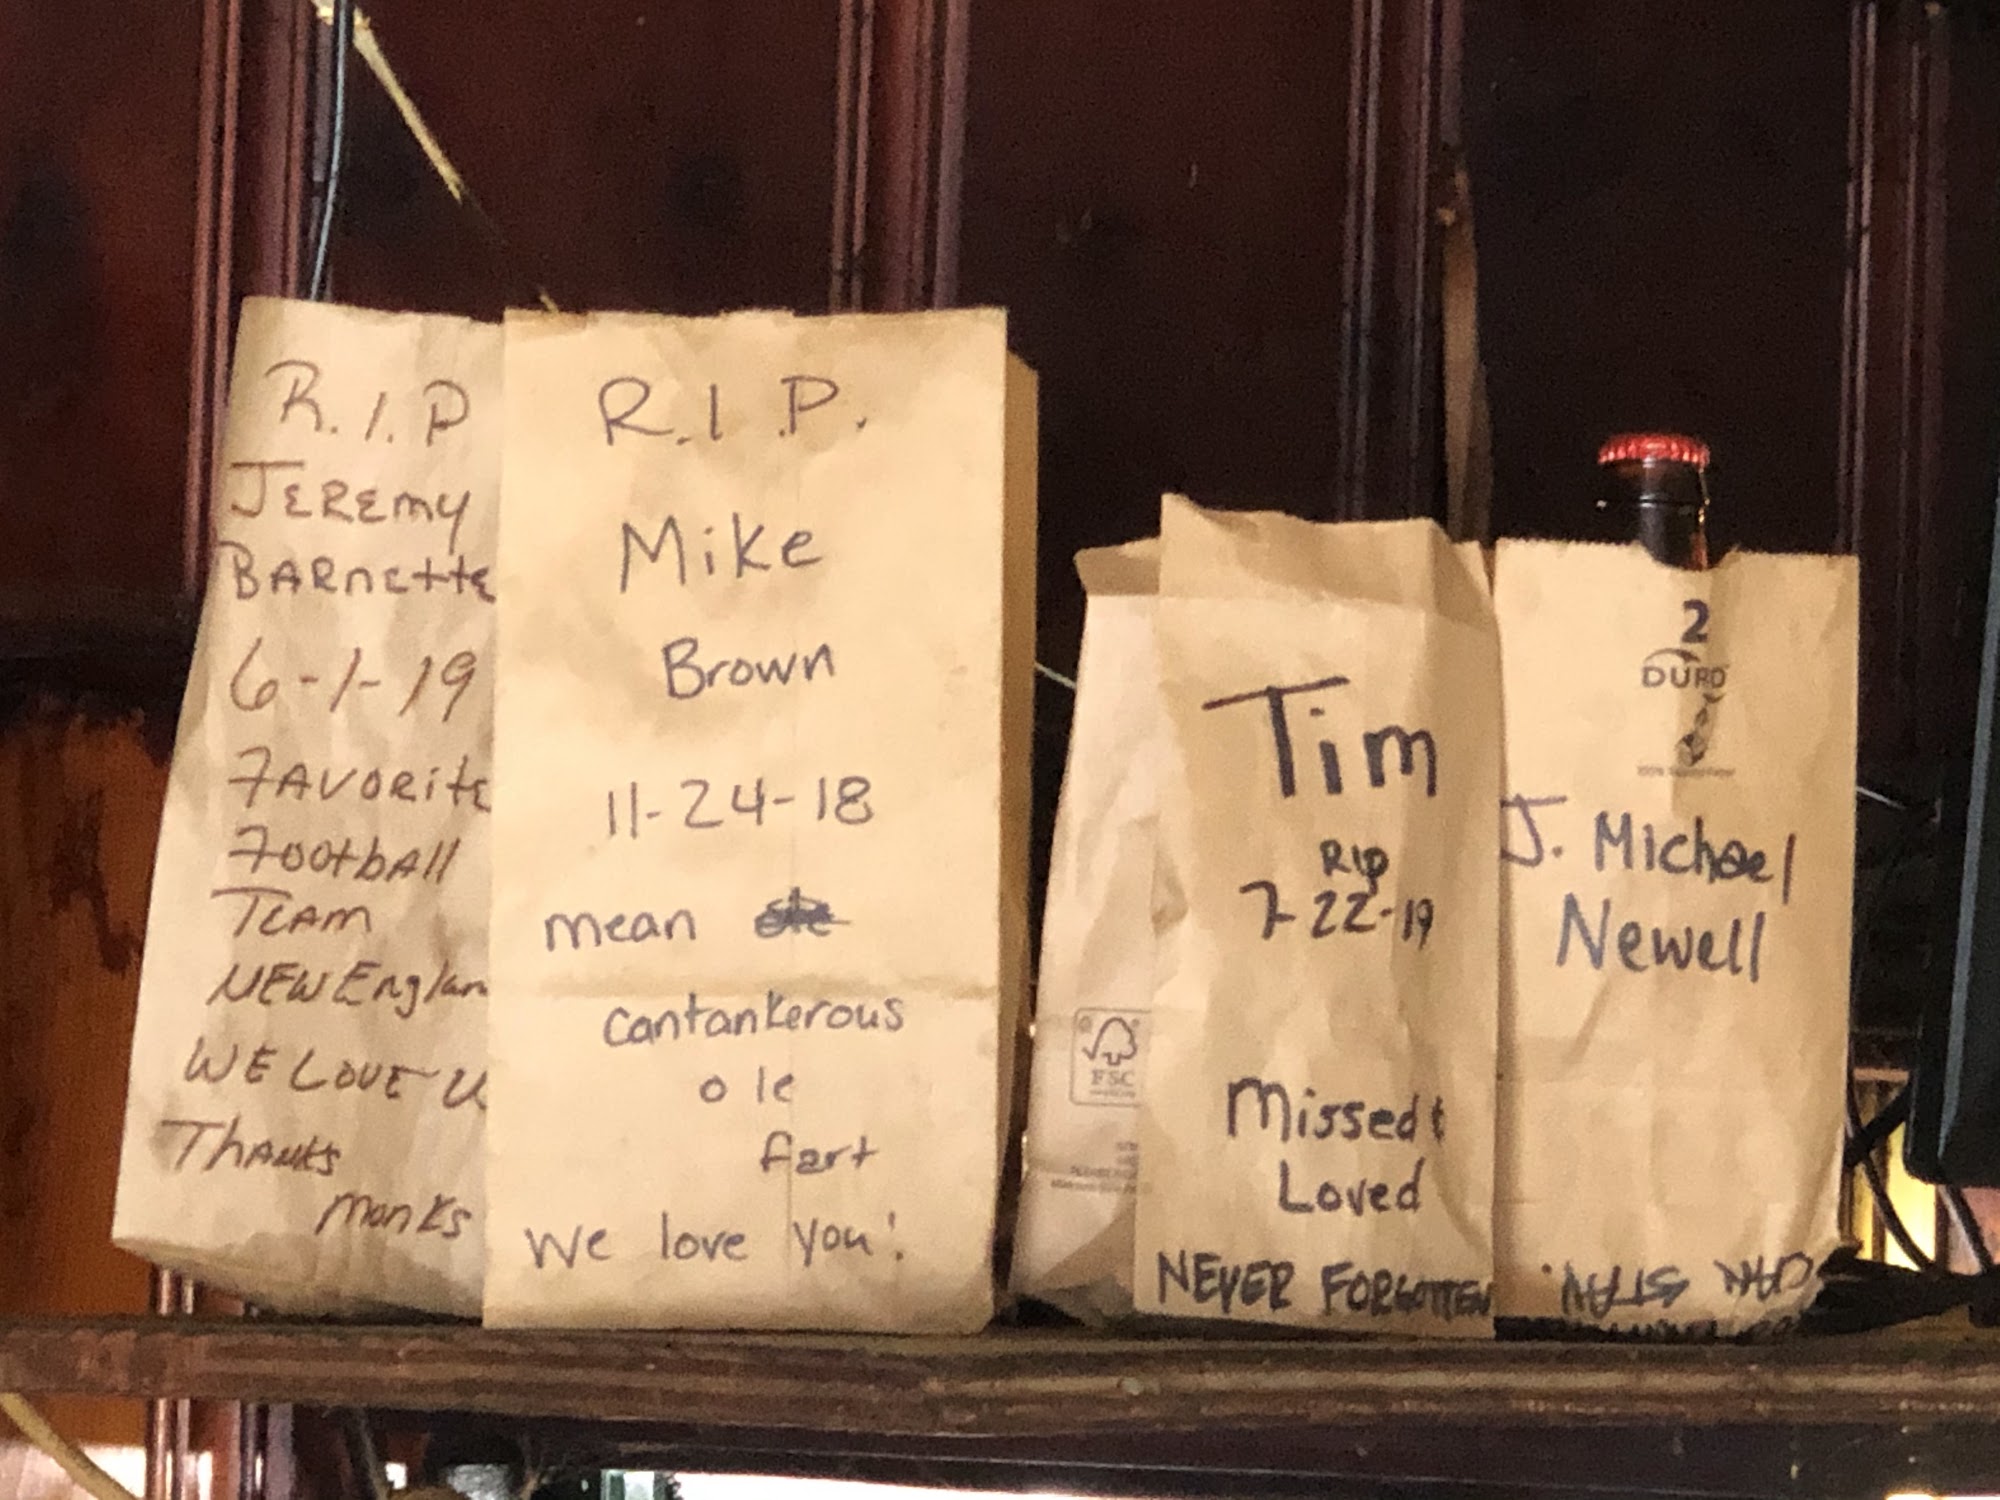 R.I.P
JEREMY
BARNETTE
6-1-19
FAVORITE
FOOTBALL
TEAM
NEW Englan
WE LOVE U
THANKS
MONKS
R.I.P.
Mike
Brown
11-24-18
mean
cantankerous
ole
fart
We love you!
FSC
Tim
RIP
7-22-19
Missed &
Loved
NEVER FORGOTTEN
2
DURO
J. Michael
Newell